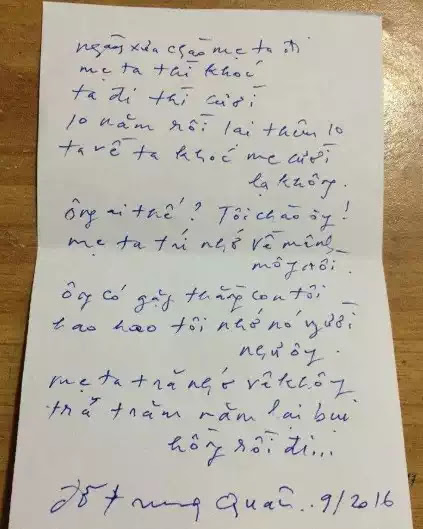 ngày xưa chào mẹ ta đi
mẹ ta thì khóc
ta đi thì cười
10 năm rồi lại thêm 10
ta về ta khóc mẹ cười
lạ không.
ông ai thế? Tôi chào ông!
mẹ ta trí nhớ về mênh
mông rồi.
ông có gặp thằng con tôi
hao hao tôi nhớ nó người
như ông.
mẹ ta trả nhớ về không
trả trăm năm lại bụi
hồng rồi đi...
Đỗ Trung Quân.. 9/2016